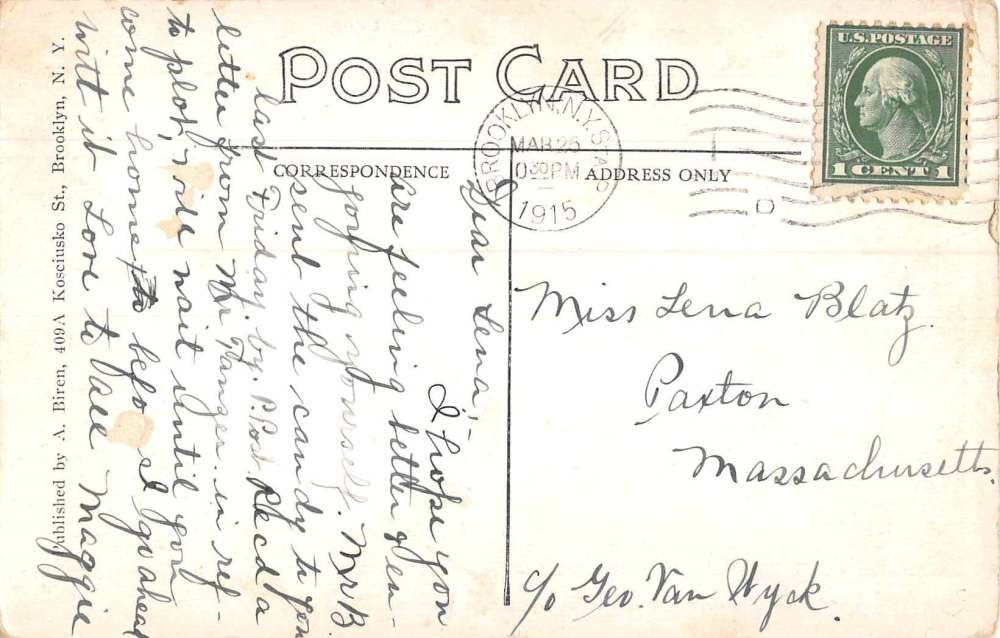 POST CARD
CORRESPONDENCE
ADDRESS ONLY
U.S. POSTAGE
1 CENT 1
BROOKLYN, N.Y. STA.
MAR 26
30 PM
1915
D
Dear Lena,-
I hope you
are feeling better & en-
joying yourself. Mrs B
sent the candy to you
last Friday by P. Post Recd a
letter from Mr in ref-
to plot, wait until you
come home befo I go ahead
with it Love to all Maggie
Miss Lena Blatz.
Paxton
Massachusetts.
c/o Geo. Van Wyck.
Published by A. Biren, 409A Kosciusko St., Brooklyn, N. Y.